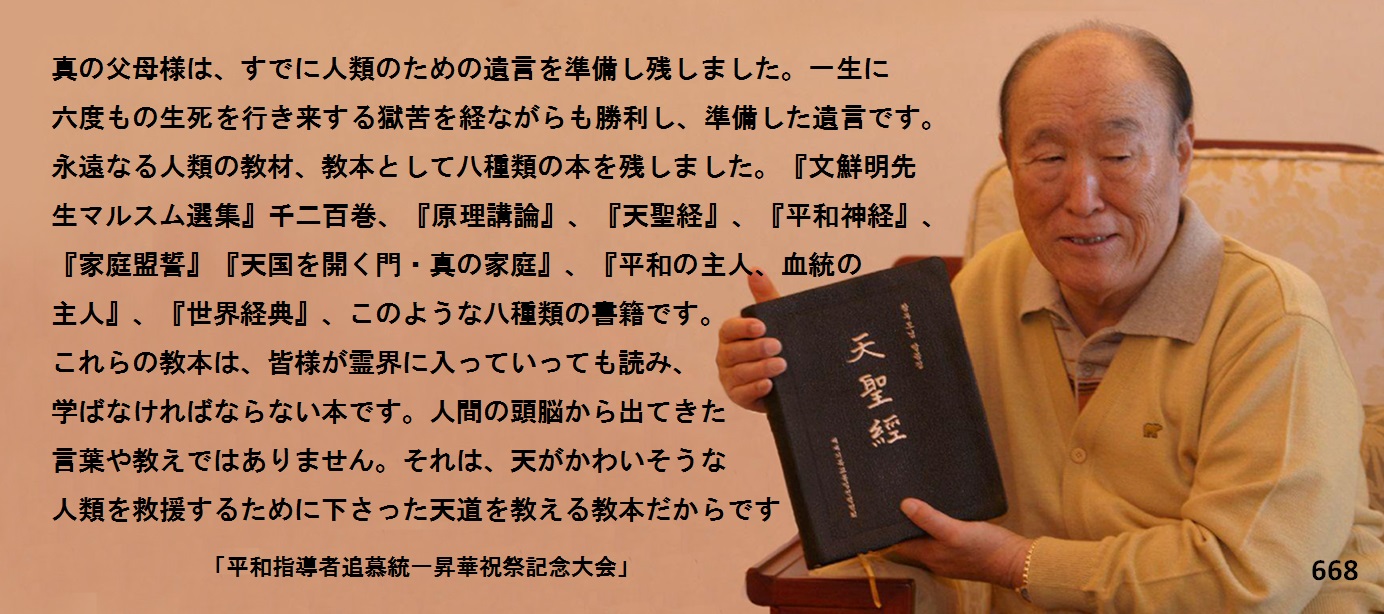 真の父母様は、すでに人類のための遺言を準備し残しました。一生に
六度もの生死を行き来する獄苦を経ながらも勝利し、準備した遺言です。
永遠なる人類の教材、教本として八種類の本を残しました。『文鮮明先
生マルスム選集』千二百巻、『原理講論』、『天聖経』、『平和神経』、
『家庭盟誓』『天国を開く門・真の家庭』、『平和の主人、血統の
主人』、『世界経典』、このような八種類の書籍です。
これらの教本は、皆様が霊界に入っていっても読み、
学ばなければならない本です。人間の頭脳から出てきた
言葉や教えではありません。それは、天がかわいそうな
人類を救援するために下さった天道を教える教本だからです
「平和指導者追慕統一昇華祝祭記念大会」
天聖經
668